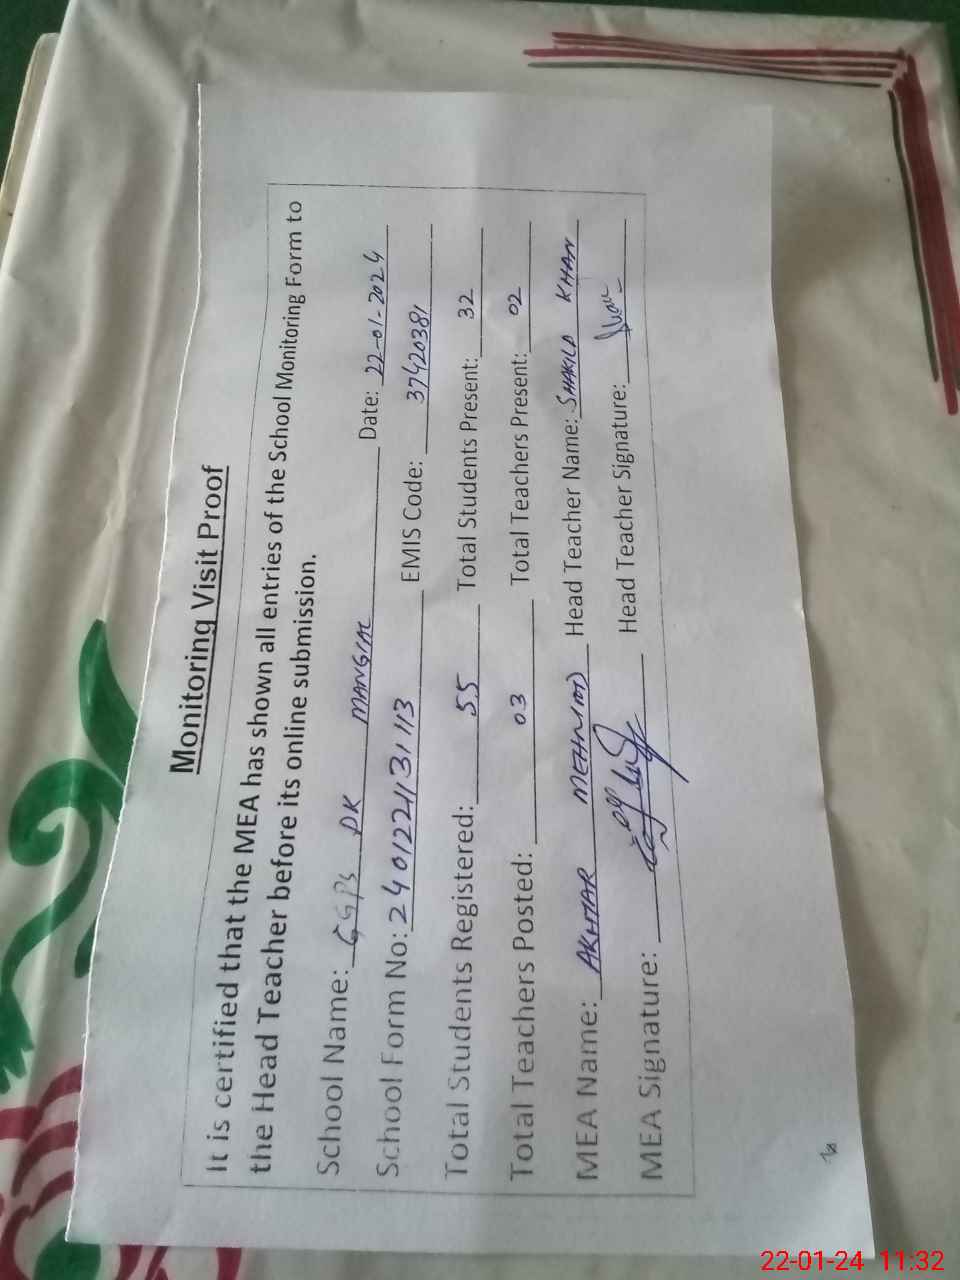 Monitoring Visit Proof
It is certified that the MEA has shown all entries of the School Monitoring Form to
the Head Teacher before its online submission.
School Name: GGPS DK MANGIAL Date: 22-01-2024
School Form No: 2401221131113 EMIS Code: 37420381
Total Students Registered: 55 Total Students Present: 32
Total Teachers Posted: 03 Total Teachers Present: 02
MEA Name: AKHTAR MEHMOOD Head Teacher Name: SHAKILA KHAN
MEA Signature: Head Teacher Signature:
22-01-24 11:32